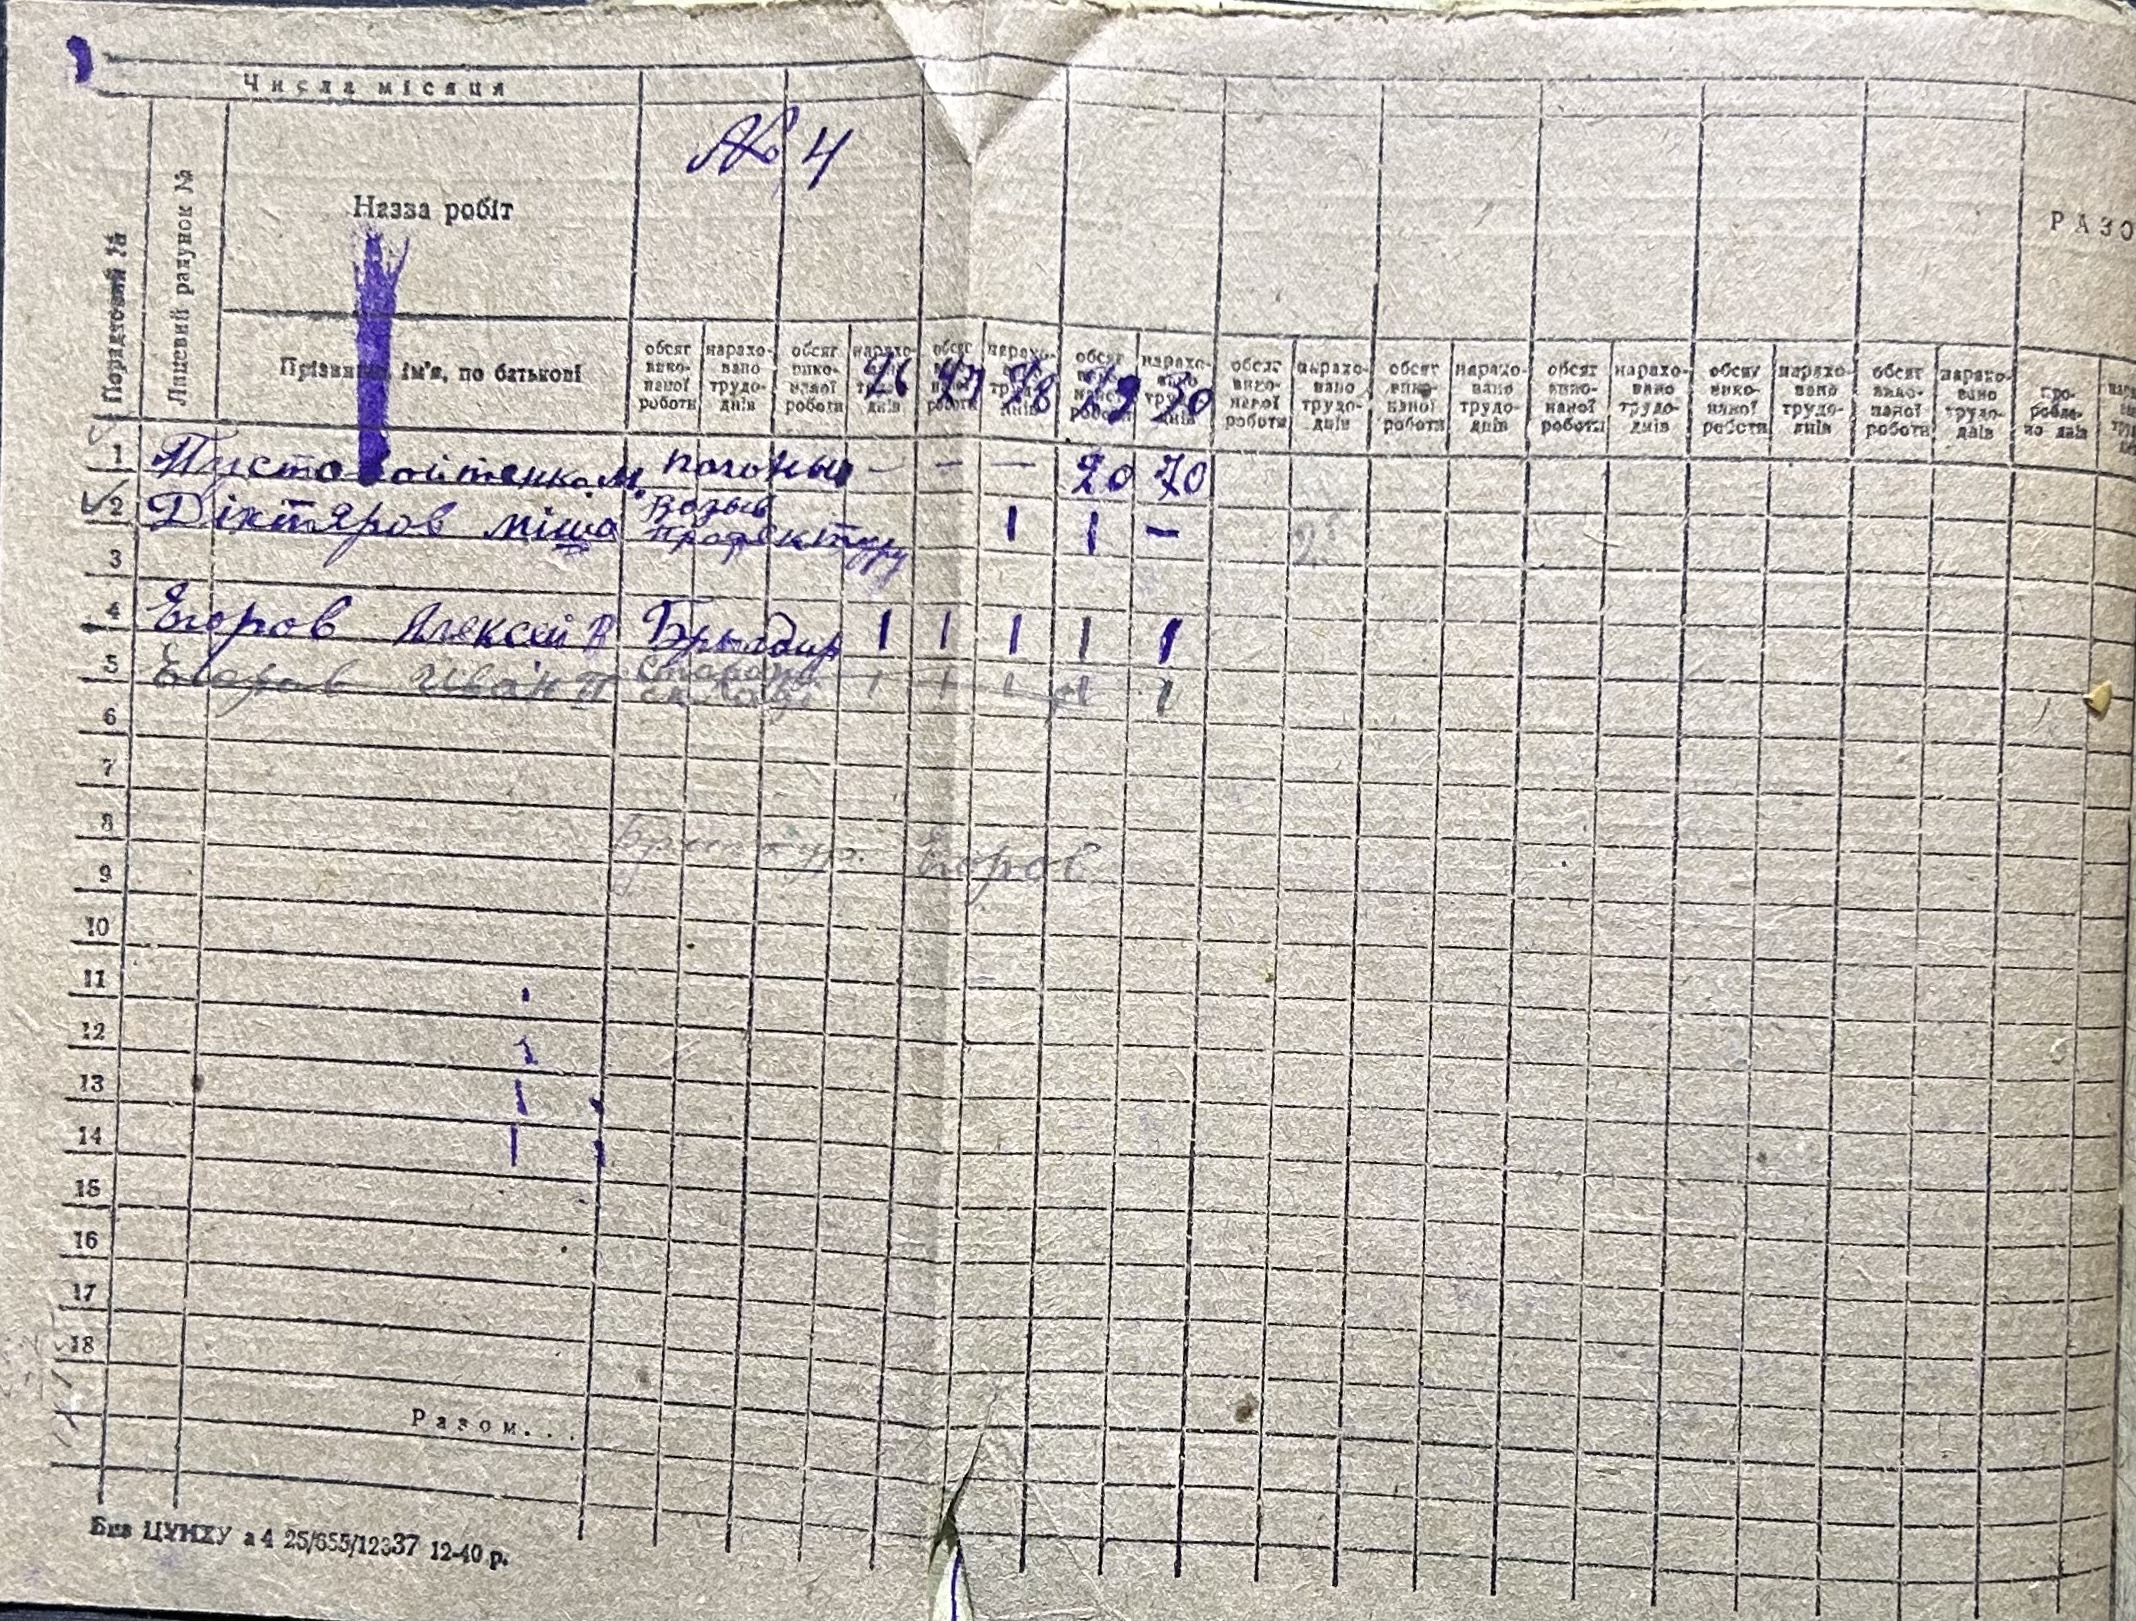 Числа місяця
№ 4
Порядковий №
Лицевий рахунок №
Назва робіт
РАЗО
Прізвище, ім'я, по батькові
обсяг виконаної роботи
нараховано трудоднів
обсяг виконаної роботи
нараховано трудоднів
обсяг виконаної роботи
нараховано трудоднів
обсяг виконаної роботи
нараховано трудоднів
обсяг виконаної роботи
нараховано трудоднів
обсяг виконаної роботи
нараховано трудоднів
обсяг виконаної роботи
нараховано трудоднів
обсяг виконаної роботи
нараховано трудоднів
обсяг виконаної роботи
нараховано трудоднів
26 27 28 29 30
1 – – – 20 70
2 Діктяров міша 1 1 –
3
4 Егоров Алексей В Брыгадир 1 1 1 1 1
5 Егоров Иван П 1 1 1 1 1
6
7
8
Егоров
9
10
11
12
13
14
15
16
17
18
Разом...
Бкв ЦУНХУ а4 25/655/12337 12-40 р.